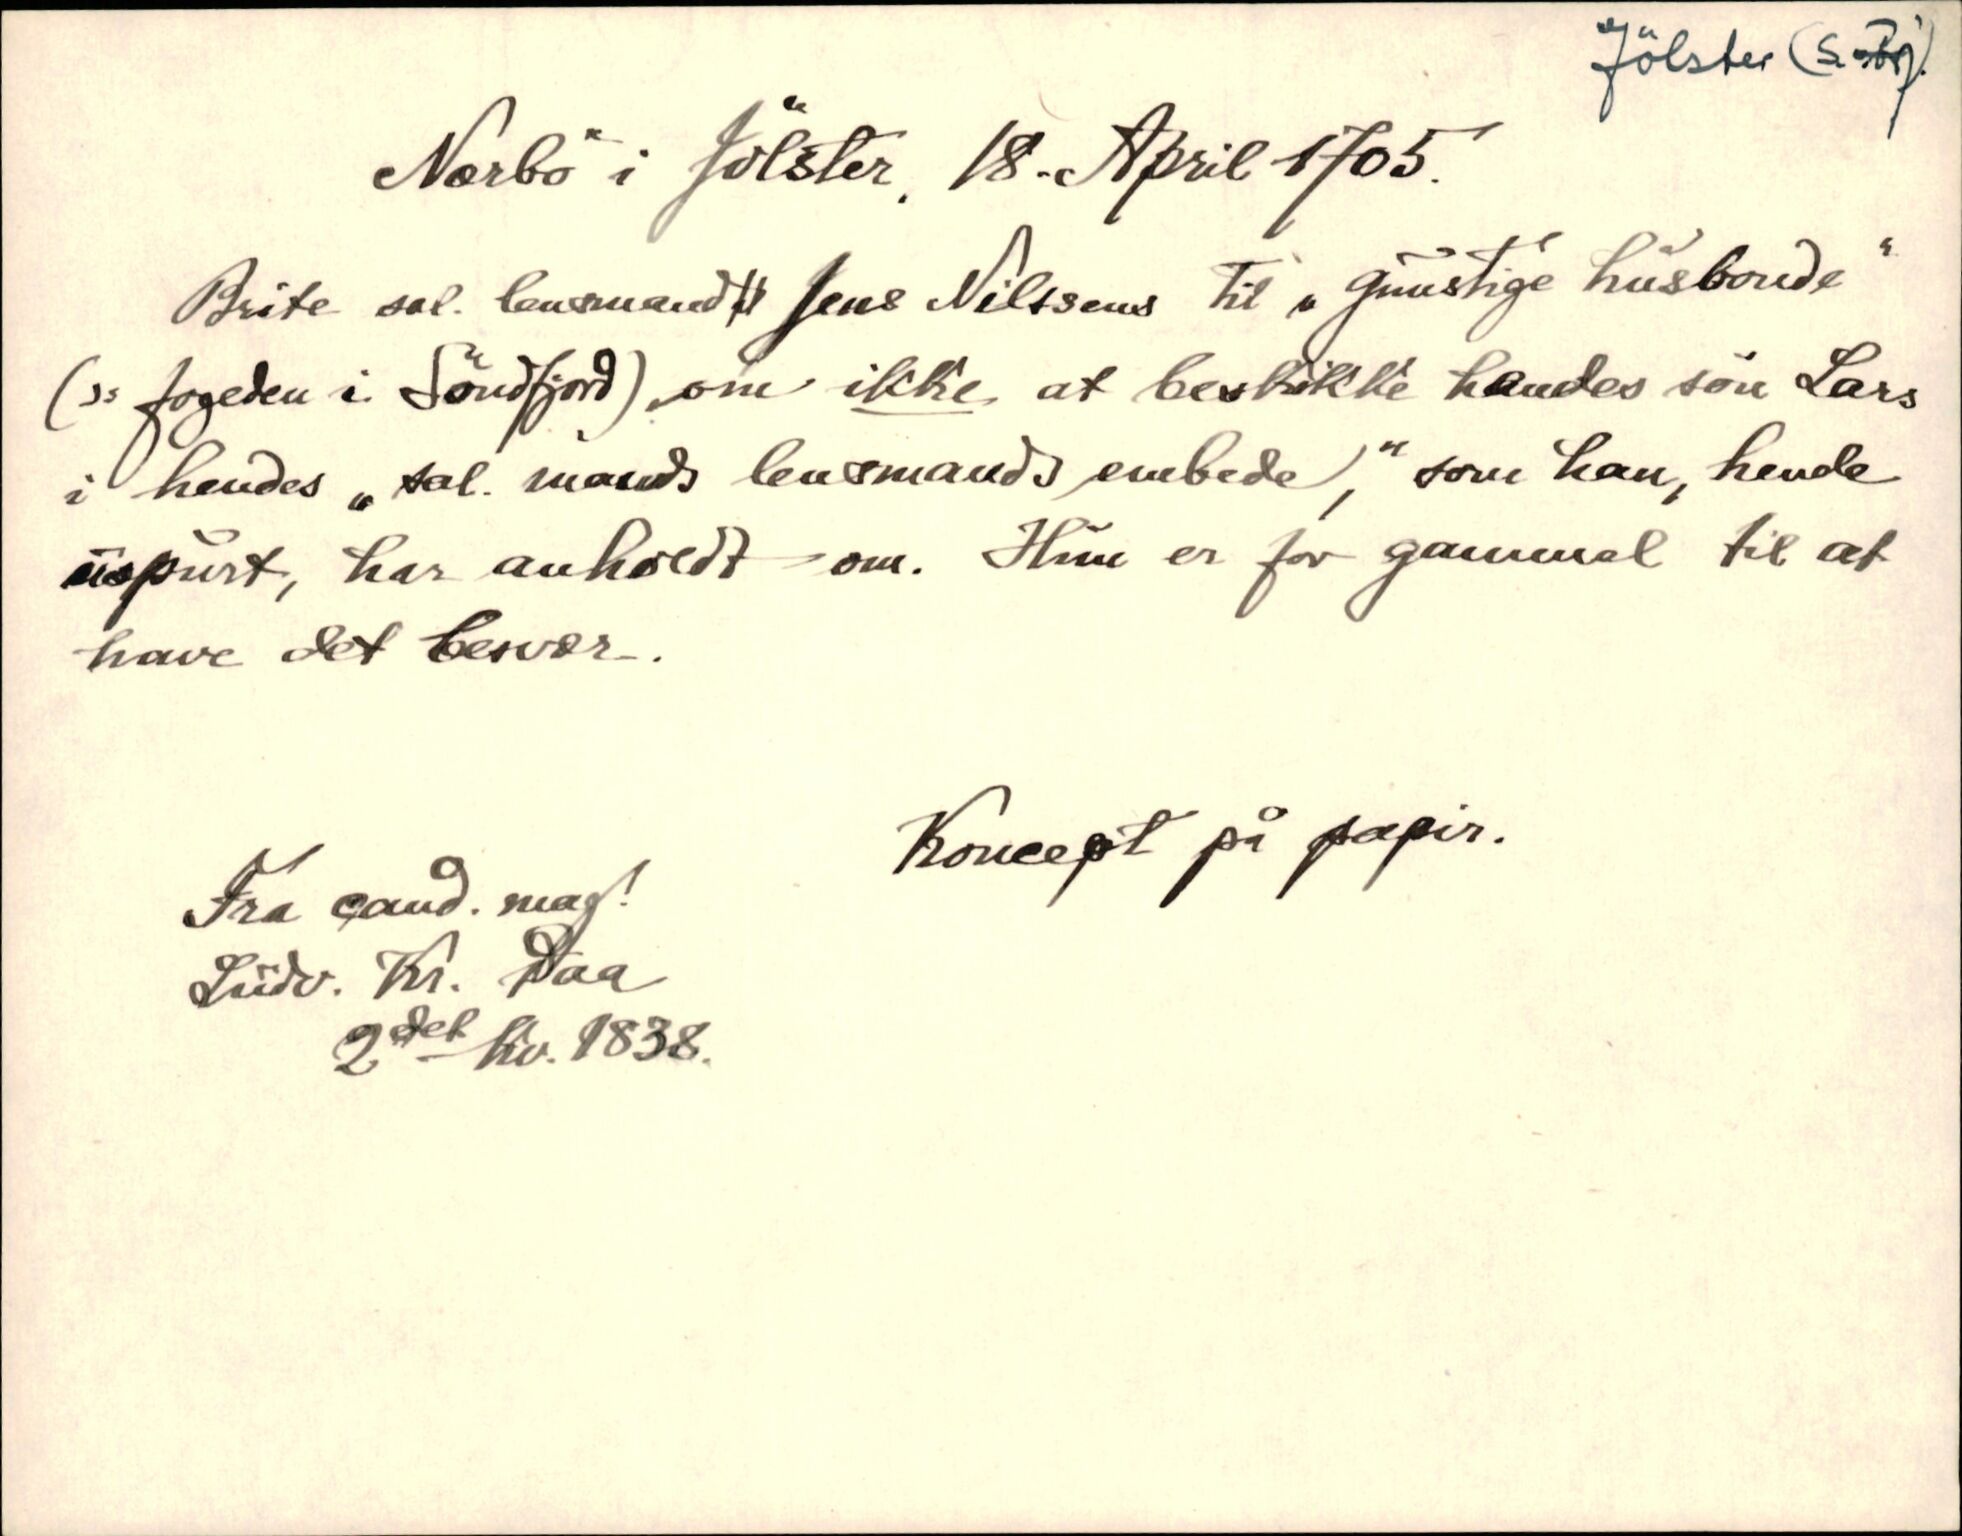 Jölster (S.
Nærbö i Jölster, 18. April 1705.
Brite sal. lensmand Jens Nilssens til „günstige hüsbonde“
(ɔ: fogeden i Söndfjord) om ikke at beskikke hendes sön Lars
i hendes „sal. mands lensmands embede,“ som han, hende
üspurt, har anholdt om. Hün er for gammel til at
have det besvær.
Koncept på papir.
Fra cand. mag.
Lüdv. Kr. Daa
2det kv. 1838.